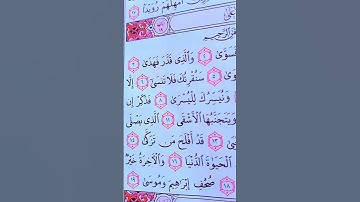 أَمْهِلْهُمْ رُوَيْدًا ١٧
فَسَوَّىٰ ٢ وَالَّذِي قَدَّرَ فَهَدَىٰ ٣
٥ سَنُقْرِئُكَ فَلَا تَنسَىٰ ٦ إِلَّا
وَنُيَسِّرُكَ لِلْيُسْرَىٰ ٨ فَذَكِّرْ إِن
وَيَتَجَنَّبُهَا الْأَشْقَى ١١ الَّذِي يَصْلَى
١٣ قَدْ أَفْلَحَ مَن تَزَكَّىٰ ١٤
الْحَيَوٰةَ الدُّنْيَا ١٦ وَالْآخِرَةُ خَيْرٌ
١٨ صُحُفِ إِبْرَٰهِيمَ وَمُوسَىٰ ١٩